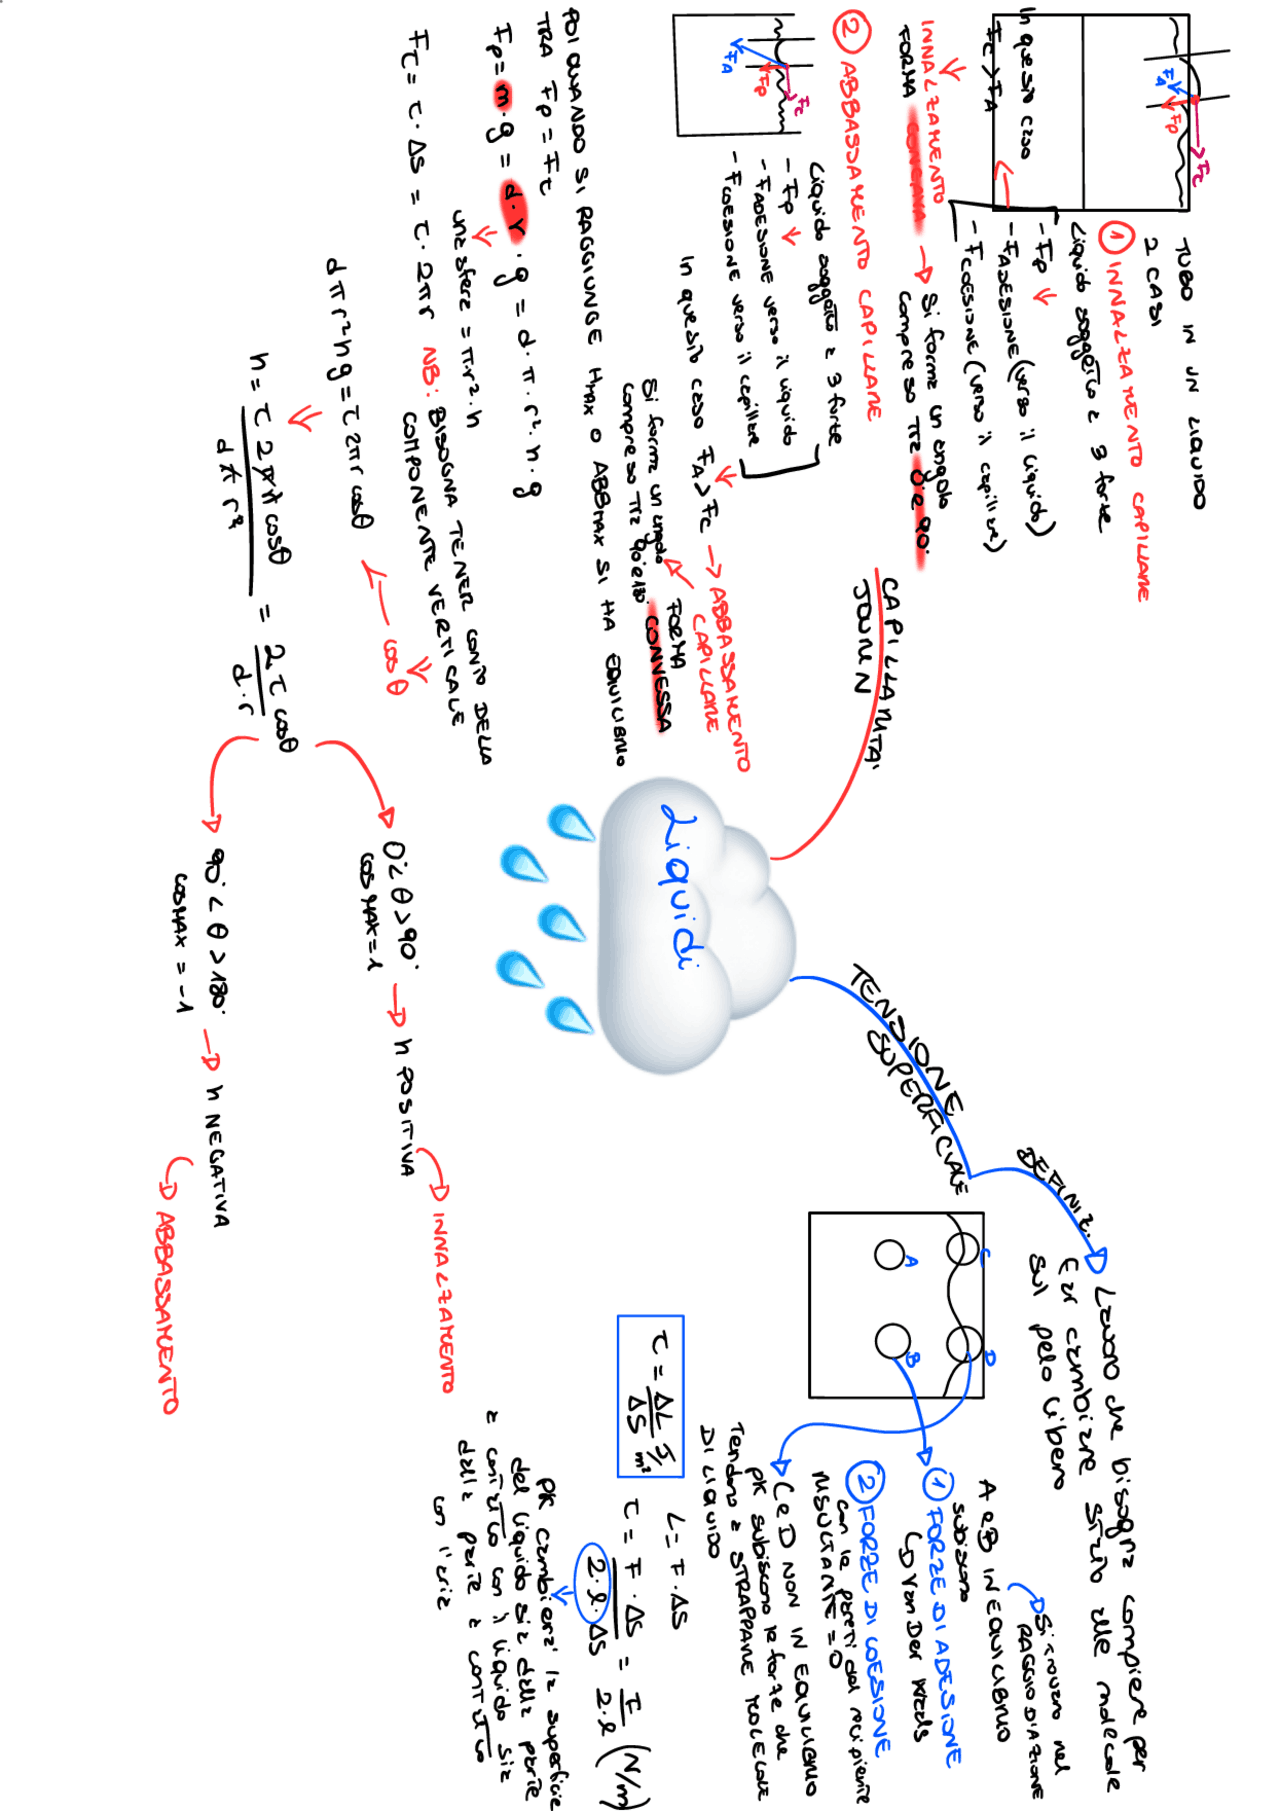 Liquidi
CAPILLARITA'
JOURIN
TUBO IN UN LIQUIDO
2 CASI
① INNALZAMENTO CAPILLARE
Liquido soggetto a 3 forze
- Fp
- FADESIONE (verso il liquido)
- FCOESIONE (verso il capillare)
In questo caso
Fc > FA
INNALZAMENTO
FORMA CONCAVA → Si forma un angolo
compreso tra 0° e 90°
Fc
FA
Fp
② ABBASSAMENTO CAPILLARE
Liquido soggetto a 3 forze
- Fp
- FADESIONE verso il liquido
- FCOESIONE verso il capillare
In questo caso FA > Fc → ABBASSAMENTO
CAPILLARE
FORMA
CONVESSA
Si forma un angolo
compreso tra 90° e 180°
Fc
Fp
FA
POI QUANDO SI RAGGIUNGE HMAX O ABBMAX SI HA EQUILIBRIO
TRA Fp = Fτ
Fp = m · g = d · V · g = d · π · r² · h · g
una sfera = π · r² · h
Fτ = τ · ΔS = τ · 2πr NB: BISOGNA TENER CONTO DELLA
COMPONENTE VERTICALE
cosθ
d π r² h g = τ 2πr cosθ
h = τ 2πr cosθ / d π r² = 2τ cosθ / d · r
0° < θ > 90° → h POSITIVA → INNALZAMENTO
cos MAX = 1
90° < θ > 180° → h NEGATIVA → ABBASSAMENTO
cos MAX = -1
TENSIONE
SUPERFICIALE
DEFINIZ.
Lavoro che bisogna compiere per
far cambiare stato alle molecole
sul pelo libero
A
B
C
D
A e B IN EQUILIBRIO
Si trovano nel
RAGGIO D'AZIONE
subiscono
① FORZE DI ADESIONE
Van Der Waals
② FORZE DI COESIONE
con le pareti del recipiente
RISULTANTE = 0
C e D NON IN EQUILIBRIO
PK subiscono le forze che
Tendono a STRAPPARE MOLECOLE
DI LIQUIDO
τ = ΔL / ΔS J / m²
L = F · ΔS
τ = F · ΔS / 2 · l · ΔS = F / 2 · l (N/m)
PK cambiera' la superficie
del liquido sia dalla parte
a contatto con il liquido sia
dalla parte a contatto
con l'aria